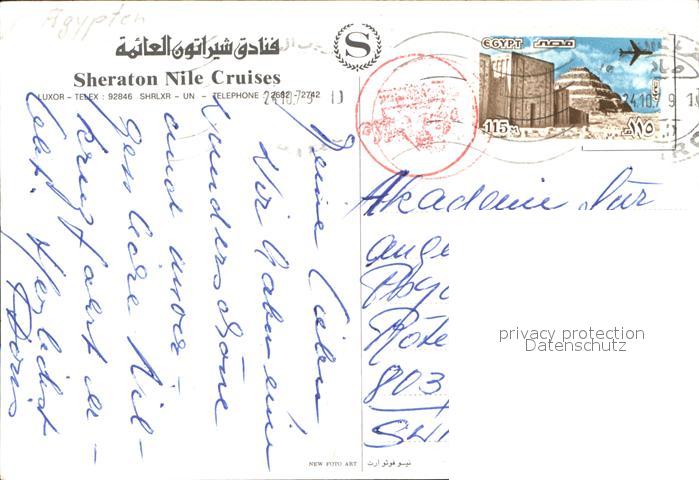 Ägypten
فنادق شيراتون العائمة
S
Sheraton Nile Cruises
LUXOR - TELEX : 92846 SHRLXR - UN - TELEPHONE : 2682 - 72742
24.10.79 11
EGYPT مصر
115 M ١١٥
24.10.79 11
Meine Lieben
Wir haben eine
wunderschöne
und
Nil-
kreuzfahrt er-
lebt. Herzlichst
Doris
Akademie für
ange
Psyc
Rote
803
SWI
privacy protection
Datenschutz
NEW FOTO ART
نيو فوتو ارت